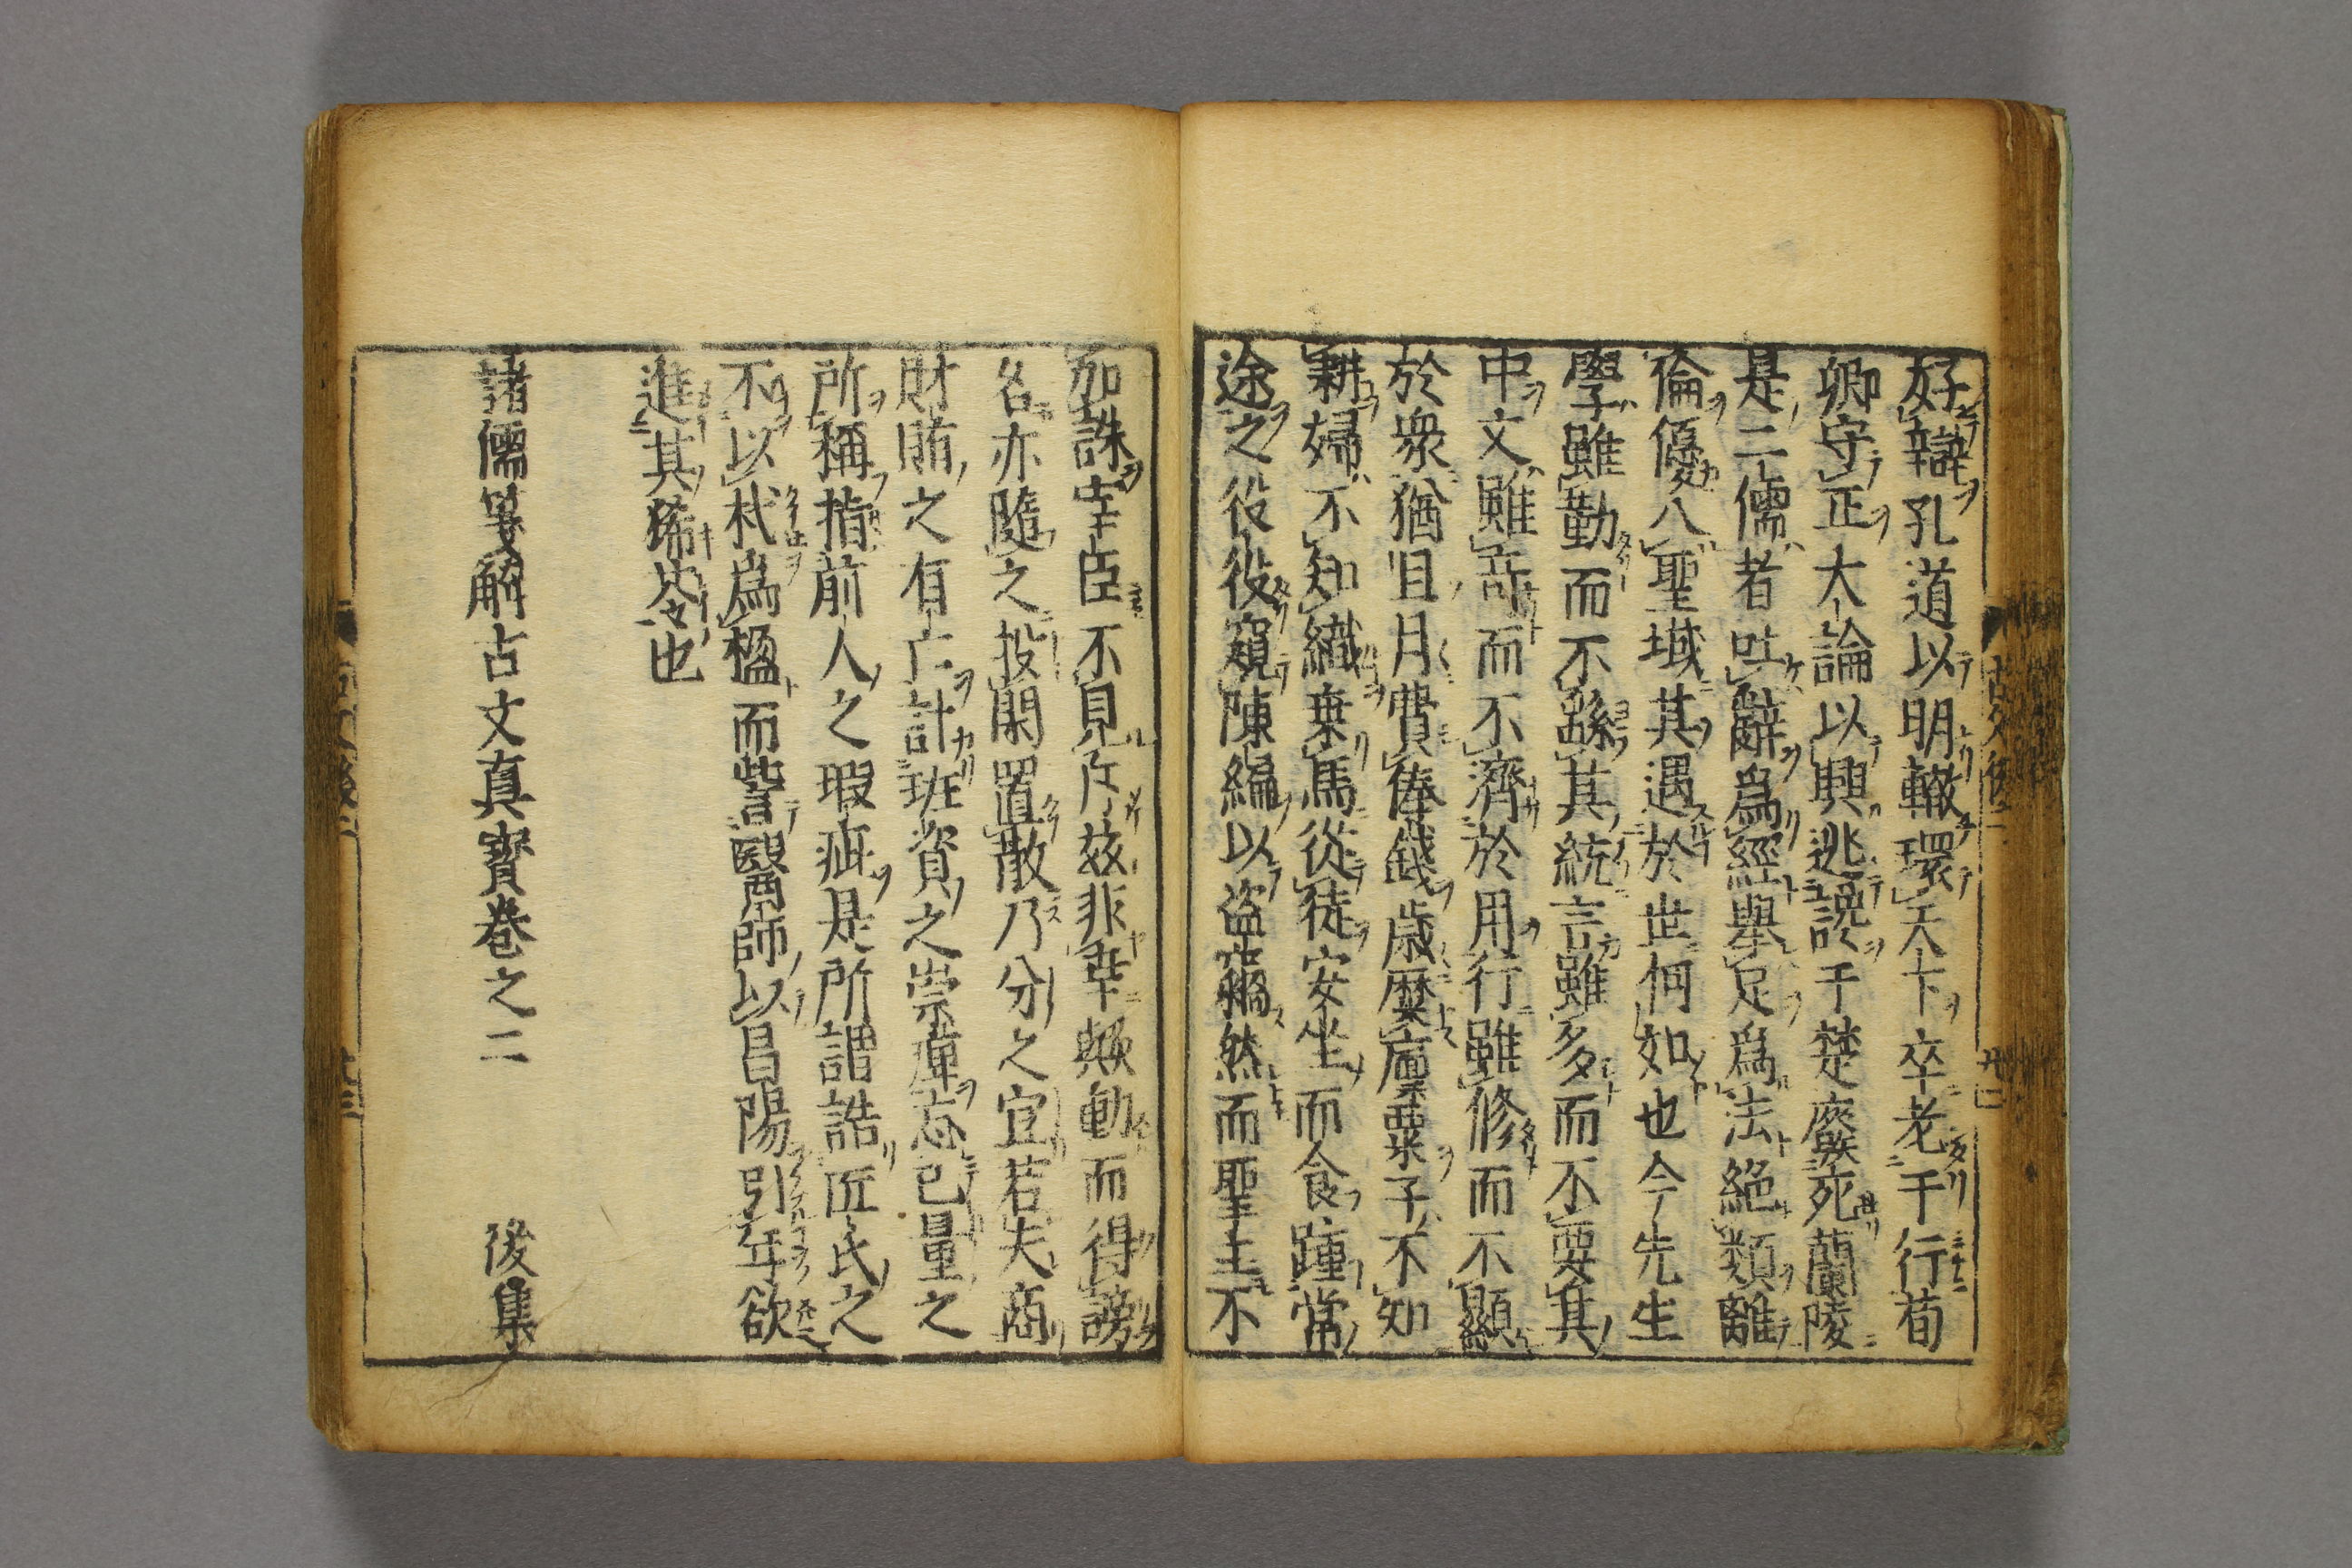 好辯孔道以明轍環天下卒老于行荀
卿守正大論以興逃讒于楚廢死蘭陵
是二儒者吐辭爲經舉足爲法絶類離
倫優入聖域其遇於世何如也今先生
學雖勤而不繇其統言雖多而不要其
中文雖奇而不濟於用行雖修而不顯
於衆猶且月費俸錢歳糜廩粟子不知
耕婦不知織乗馬從徒安坐而食踵常
途之役役窺陳編以盗竊然而聖主不
加誅宰臣不見斥茲非幸歟動而得謗
名亦隨之投閑置散乃分之宜若夫商
財賄之有亡計班資之崇庳忘己量之
所稱指前人之瑕疵是所謂詰匠氏之
不以杙爲楹而訾醫師以昌陽引年欲
進其豨苓也
諸儒箋解古文真寳巻之二 後集